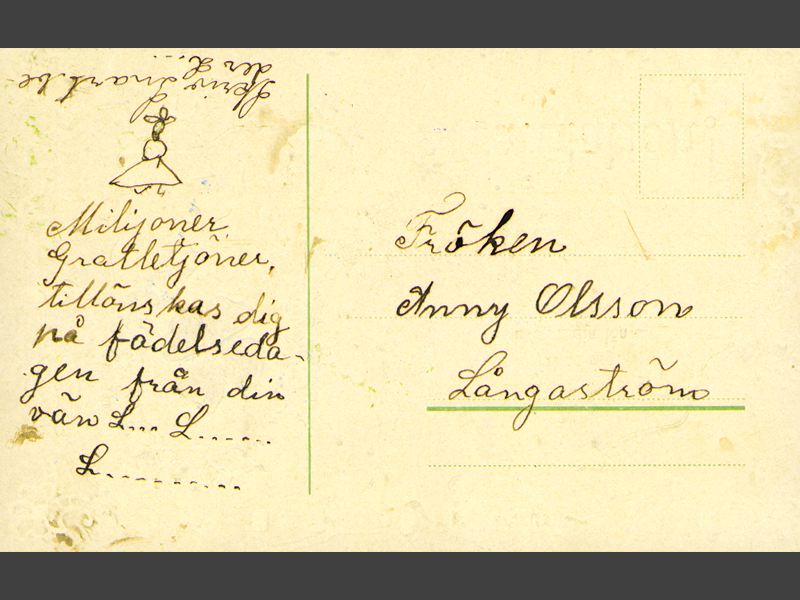 Skriv snart. be
der L...
Milijoner,
Gratletjöner,
tillönskas dig
på födelseda-
gen från din
vän L... L......
L..........
Fröken
Anny Olsson
Långaström